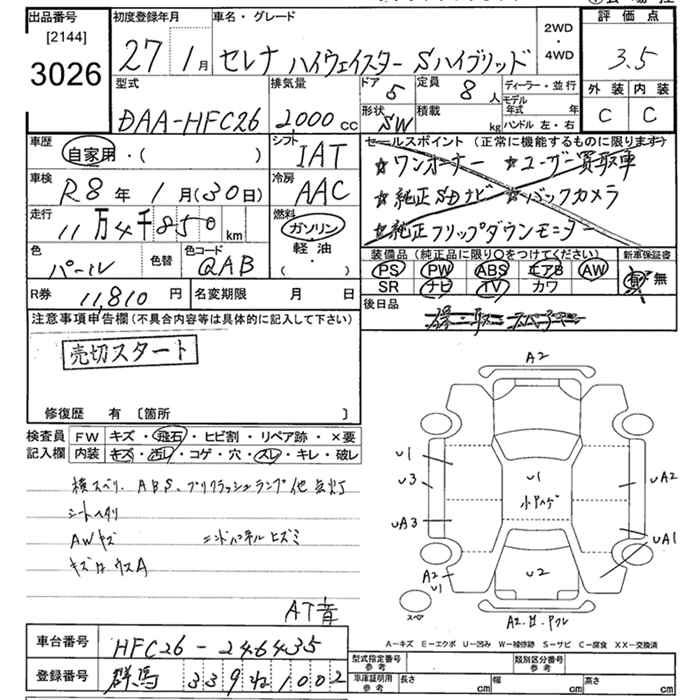 出品番号 初度登録年月 車名・グレード 2WD・4WD 評価点
[2144]
3026 27 1月 セレナ ハイウェイスター Sハイブリッド 3.5
型式 排気量 ドア 5 定員 8人 ディーラー・並行 外装 内装
DAA-HFC26 2000cc 形状 SW 積載 kg モデル年式 年 C C
ハンドル 左・右
車歴 シフト セールスポイント(正常に機能するものに限ります)
自家用・( ) IAT ☆ワンオーナー ☆ユーザー買取車
車検 R8年1月(30日) 冷房 AAC ☆純正SDナビ ☆バックカメラ
走行 11万4千850km 燃料 ガソリン・軽油・( ) ☆純正フリップダウンモニター
色 パール 色替 色コード QAB 装備品(純正品に限り○をつけてください) 新車保証書
PS PW ABS エアB AW 有・無
SR ナビ TV カワ
R券 11,810円 名変期限 月 日 後日品
注意事項申告欄(不具合内容等は具体的に記入して下さい)
売切スタート
修復歴 有 [箇所 ]
検査員 FW キズ・飛石・ヒビ割・リペア跡・×要
記入欄 内装 キズ・汚レ・コゲ・穴・スレ・キレ・破レ
横スベリ、ABS、プリクラッシュランプ他点灯
シートヘタリ
AWキズ エンドパネルヒズミ
キズ凹ウスA
AT音
A2
U1
U3
UA3
A2
U1
U1
小Pハゲ
U2
UA2
UA1
スペア
A-キズ E-エクボ U-凹み W-補修跡 S-サビ C-腐食 XX-交換済
車台番号 HFC26-246435
登録番号 群馬 339 ね 1002
型式指定番号 参考 類別区分番号 参考
車庫証明用 参考 長さ cm 幅 cm 高さ cm